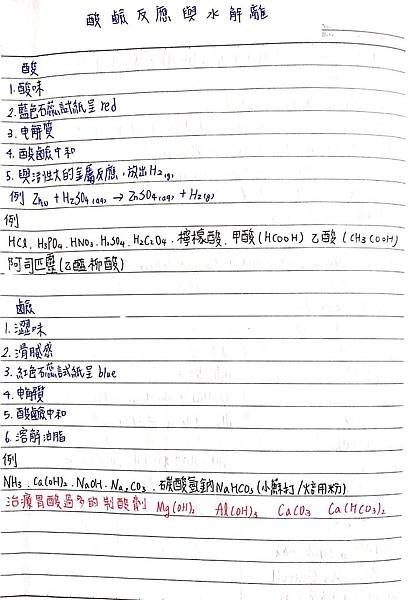 酸鹼反應與水解離
酸
1.酸味
2.藍色石蕊試紙呈red
3.电解質
4.酸鹼中和
5.與活性大的金屬反應,放出H₂(g)
例 Zn(s) + H₂SO₄(aq) → ZnSO₄(aq) + H₂(g)
例
HCl、H₃PO₄、HNO₃、H₂SO₄、H₂C₂O₄、檸檬酸、甲酸(HCOOH) 乙酸(CH₃COOH)
阿司匹靈(乙醯柳酸)
鹼
1.澀味
2.滑膩感
3.紅色石蕊試紙呈blue
4.电解質
5.酸鹼中和
6.溶解油脂
例
NH₃、Ca(OH)₂、NaOH、Na₂CO₃、碳酸氫鈉NaHCO₃(小蘇打/焙用粉)
治療胃酸過多的制酸劑 Mg(OH)₂ Al(OH)₃ CaCO₃ Ca(HCO₃)₂